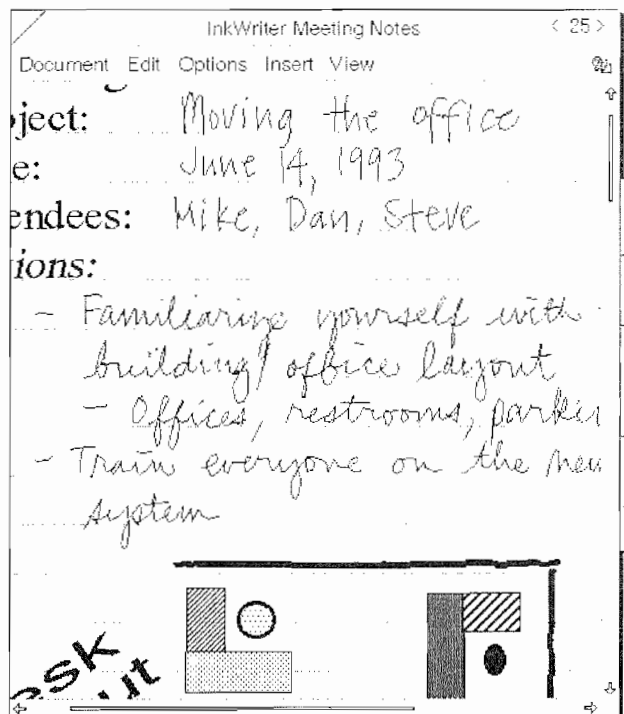 InkWriter Meeting Notes < 25 >
Document Edit Options Insert View
ject: Moving the office
e: June 14, 1993
endees: Mike, Dan, Steve
ions:
- Familiarize yourself with
building/office layout
- Offices, restrooms, parkin
- Train everyone on the new
system
esk
ut